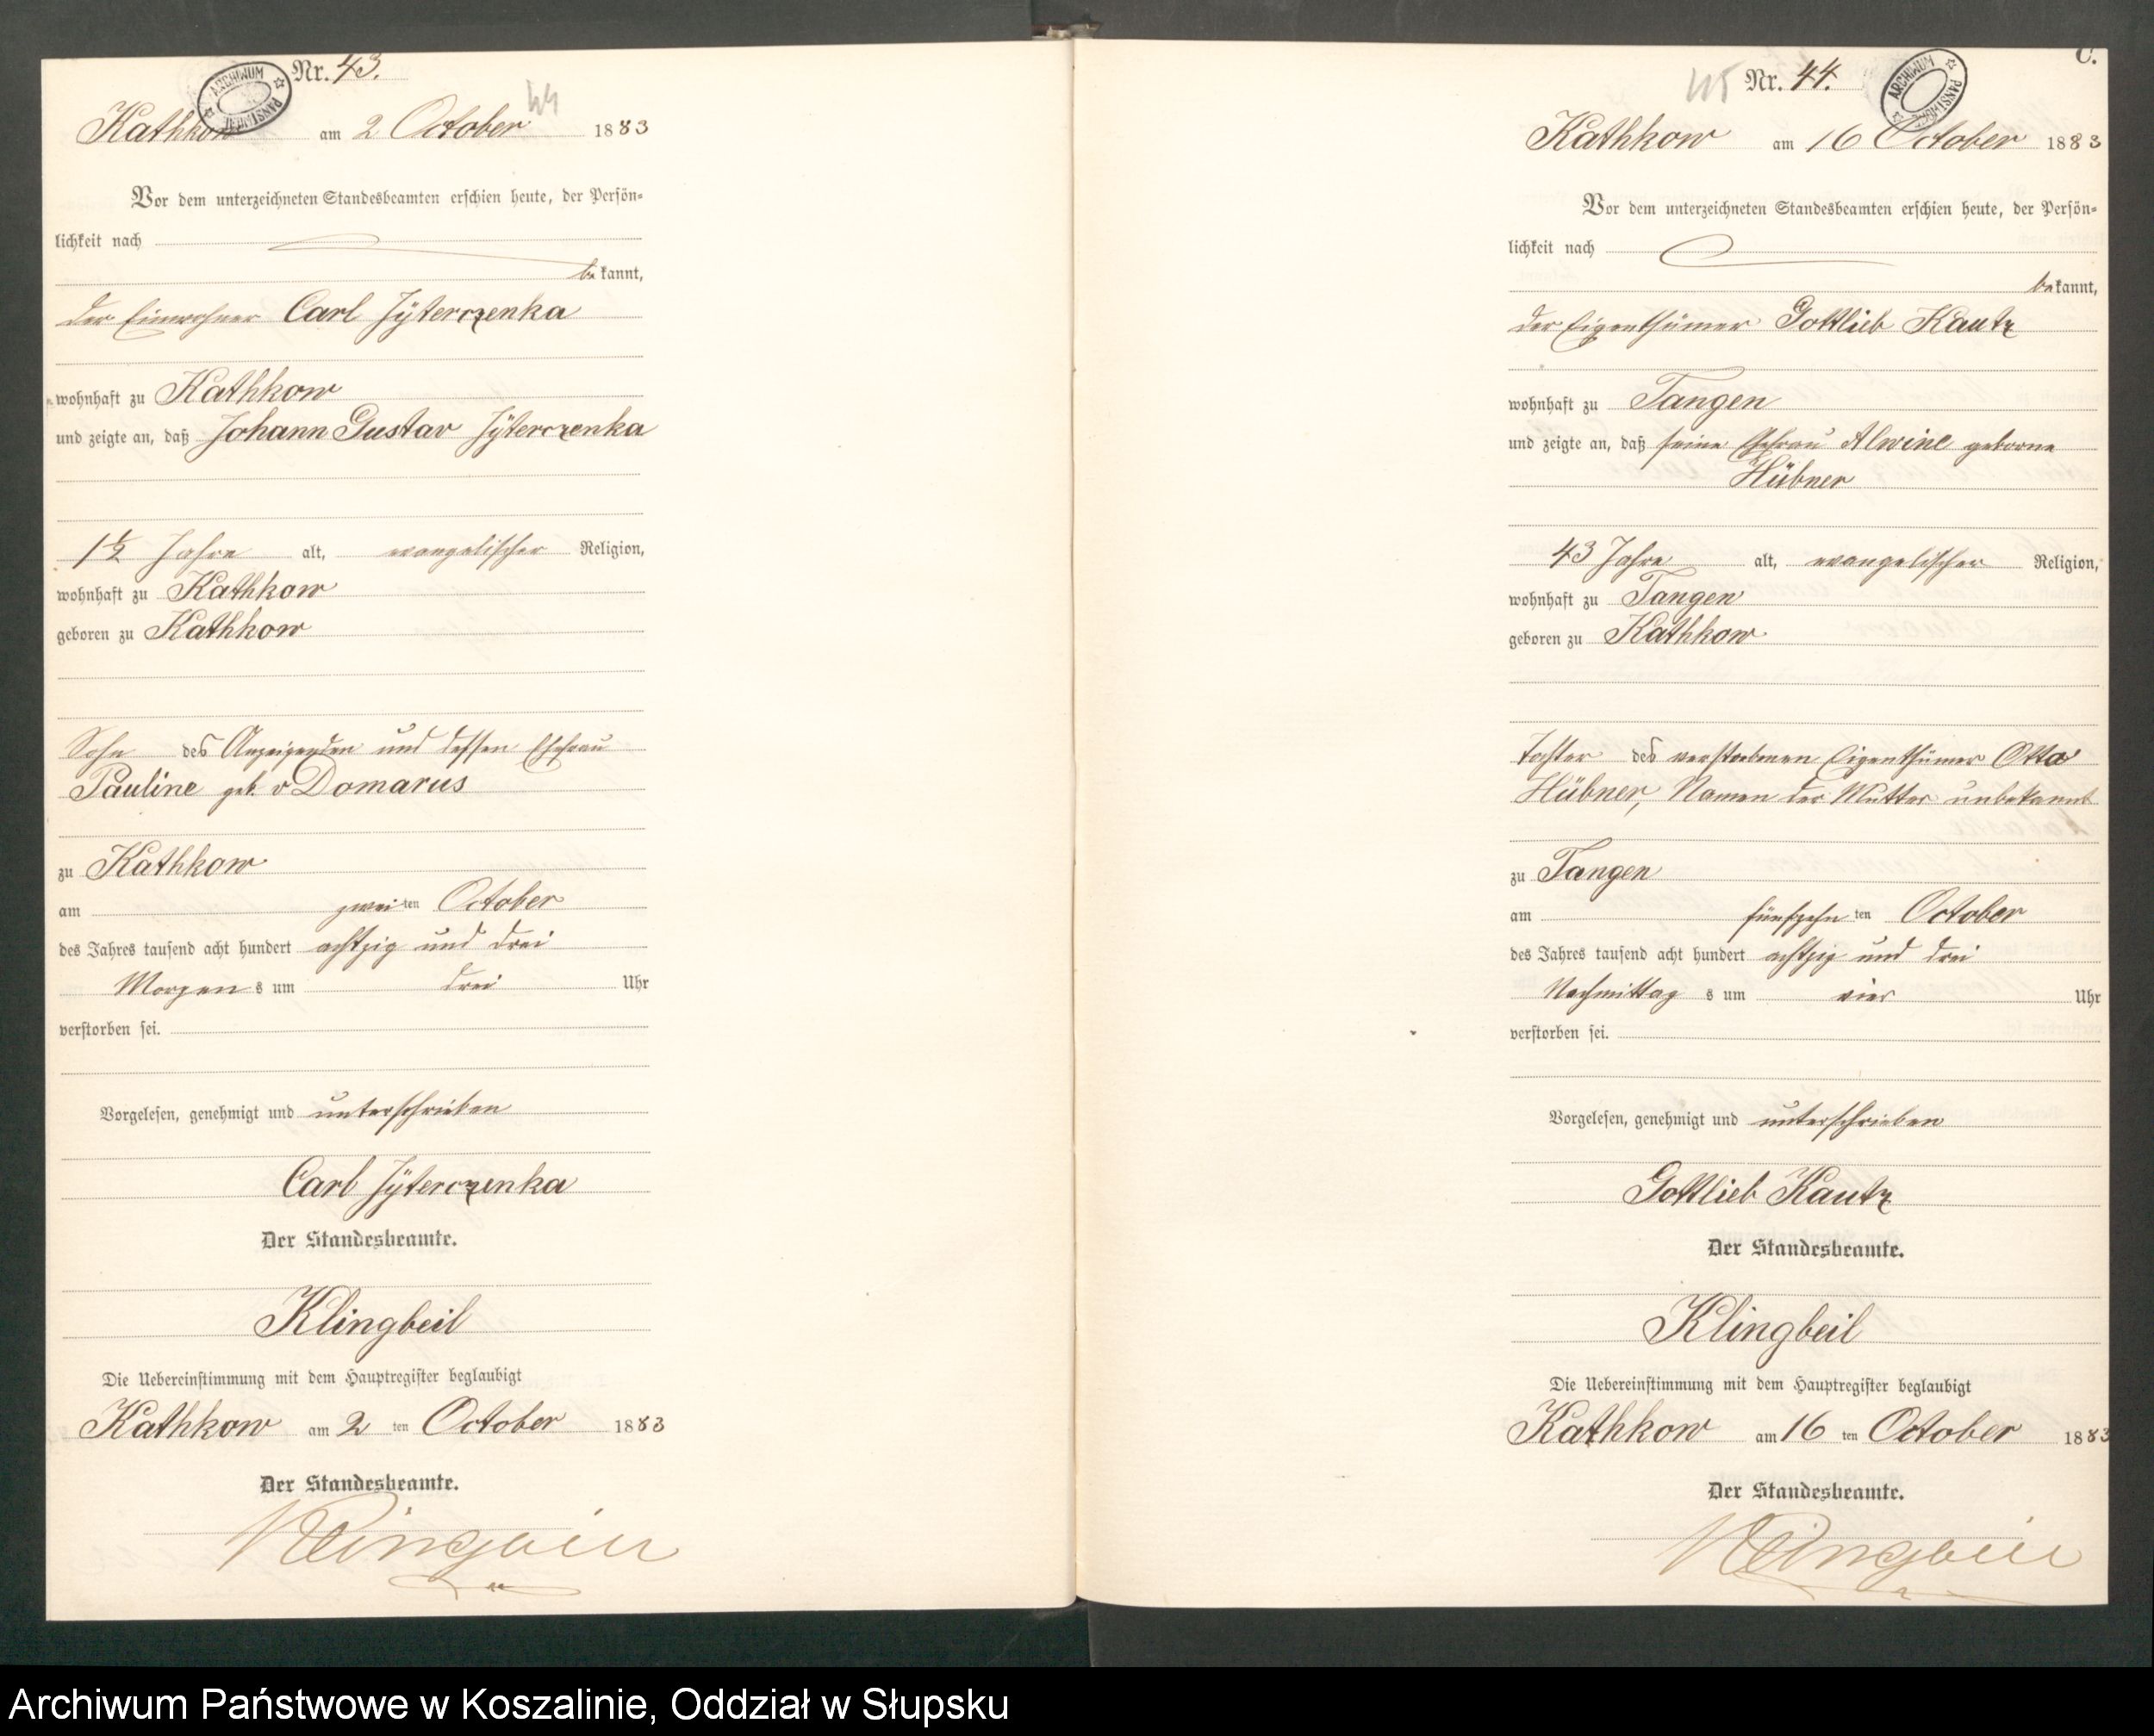 Nr. 43.
44
ARCHIWUM PAŃSTWOWE
Kathkow am 2 October 1883
Vor dem unterzeichneten Standesbeamten erschien heute, der Persön-
lichkeit nach
bekannt,
der Einwohner Carl Jÿterczenka
wohnhaft zu Kathkow
und zeigte an, daß Johann Gustav Jÿterczenka
1½ Jahre alt, evangelischer Religion,
wohnhaft zu Kathkow
geboren zu Kathkow
Sohn des Anzeigenden und dessen Ehefrau
Pauline geb. v Domarus
zu Kathkow
am zweiten October
des Jahres tausend acht hundert achtzig und drei
Morgens um drei Uhr
verstorben sei.
Vorgelesen, genehmigt und unterschrieben
Carl Jÿterczenka
Der Standesbeamte.
Klingbeil
Die Uebereinstimmung mit dem Hauptregister beglaubigt
Kathkow am 2 ten October 1883
Der Standesbeamte.
Klingbeil
C.
45
Nr. 44.
ARCHIWUM PAŃSTWOWE
Kathkow am 16 October 1883
Vor dem unterzeichneten Standesbeamten erschien heute, der Persön-
lichkeit nach
bekannt,
der Eigenthümer Gottlieb Kautz
wohnhaft zu Tangen
und zeigte an, daß seine Ehefrau Alwine geborne
Hübner
43 Jahre alt, evangelischer Religion,
wohnhaft zu Tangen
geboren zu Kathkow
Tochter des verstorbenen Eigenthümer Otto
Hübner, Namen der Mutter unbekannt
zu Tangen
am fünfzehnten October
des Jahres tausend acht hundert achtzig und drei
Nachmittags um vier Uhr
verstorben sei.
Vorgelesen, genehmigt und unterschrieben
Gottlieb Kautz
Der Standesbeamte.
Klingbeil
Die Uebereinstimmung mit dem Hauptregister beglaubigt
Kathkow am 16 ten October 1883
Der Standesbeamte.
Klingbeil
Archiwum Państwowe w Koszalinie, Oddział w Słupsku